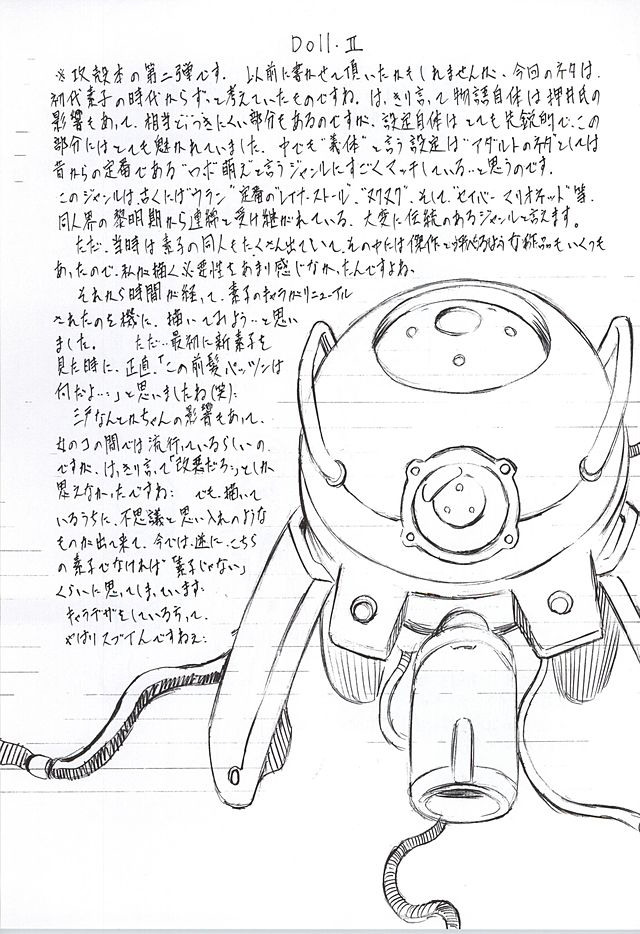 Doll.Ⅱ
※攻殻本の第二弾です。以前に書かせて頂いたかもしれませんが、今回のネタは、
初代素子の時代からずっと考えていたものですね。はっきり言って物語自体は押井氏の
影響もあって、相当とっつきにくい部分もあるのですが、設定自体はとても先鋭的で、この
部分にはとても魅かれていました。中でも"義体"と言う設定は"アダルトのネタ"としては
昔からの定番である"ロボ萌え"と言うジャンルにすごくマッチしている…と思うのです。
このジャンルは、古くは"ウラン"定番の"レイナ・ストール"、"ヌクヌク"、そして"セイバーマリオネット"等、
同人界の黎明期から連綿と受け継がれている、大変に伝統のあるジャンルと言えます。
ただ、当時は素子の同人もたくさん出ていて、その中には傑作と呼べるような作品もいくつも
あったので、私が描く必要性をあまり感じなかったんですよね。
それから時間が経って、素子のキャラがリニューアル
されたのを機に、描いてみよう…と思い
ました。ただ…最初に新素子を
見た時に、正直、「この前髪パッツンは
何だよ…」と思いましたね(笑)。
三戸なんとかちゃんの影響もあって、
女のコの間では流行っているらしいの
ですが、はっきり言って「改悪だろ…」としか
思えなかったですね。でも、描いて
いるうちに、不思議と思い入れのような
ものが出て来て、今では、逆に、こちら
の素子でなければ「素子じゃない」
くらいに思ってしまっています。
キャラデザをしている方って、
やはりスゴイんですねぇ。